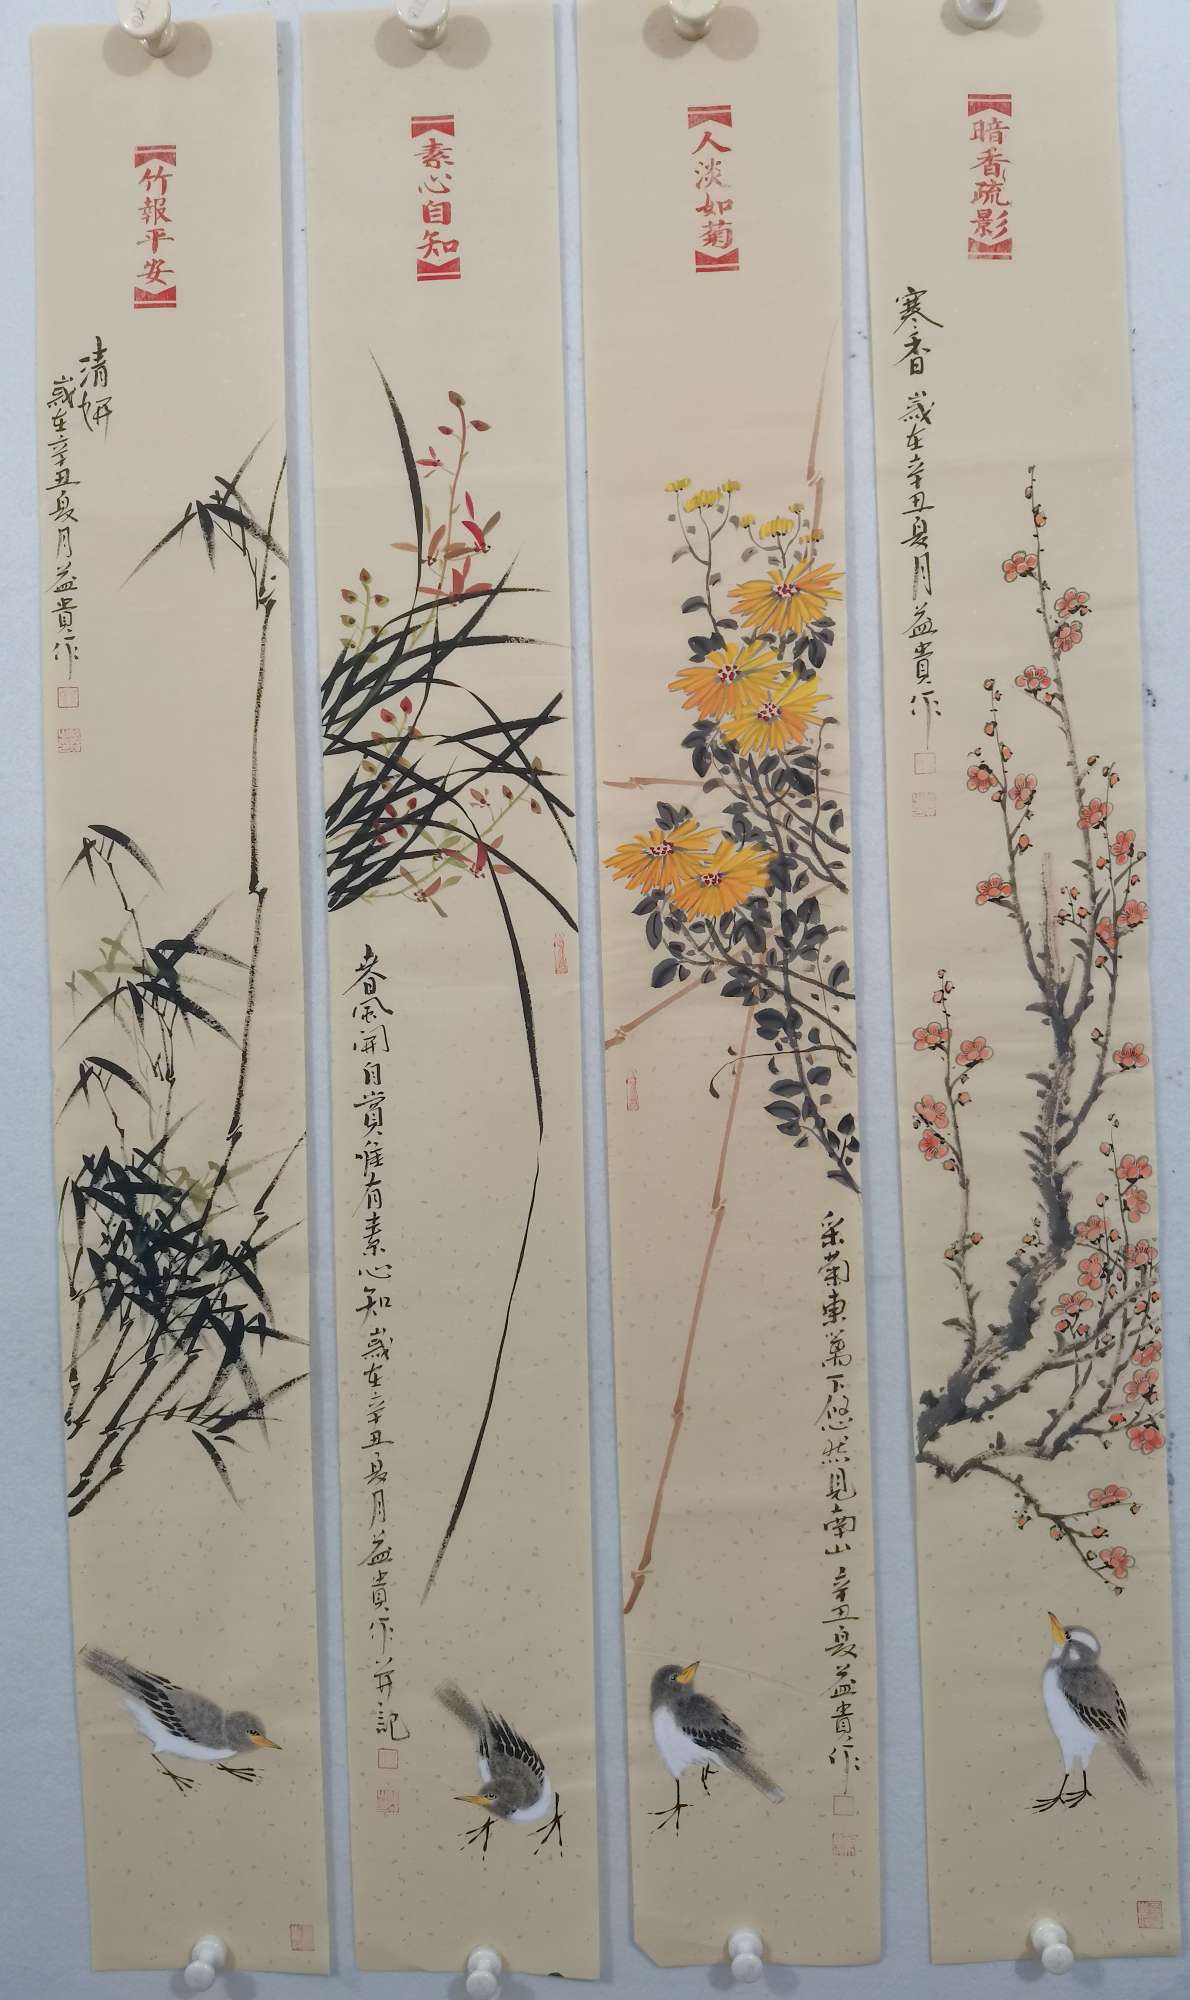 暗香疏影
寒香
歲在辛丑夏月益貴作
人淡如菊
采菊東篱下悠然見南山辛丑夏益貴作
素心自知
春風開自賞唯有素心知歲在辛丑夏月益貴作并記
竹報平安
清妍
歲在辛丑夏月益貴作